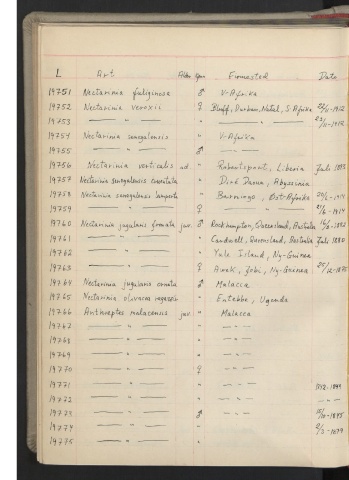 L Art. Alder Kjøn Finnested Date
19751 Nectarinia fuliginosa ♂ V-Afrika
19752 Nectarinia veroxii ♀ Bluff, Durban, Natal, S. Afrika 22/2-1912
19753 — " — " — " — 23/11-1912
19754 Nectarinia senegalensis " V-Afrika
19755 — " — ♂ — " —
19756 Nectarinia verticalis ad " Robertsport, Liberia Juli 1893
19757 Nectarinia senegalensis cruentata " Abyssinia
19758 Nectarinia senegalensis " Ost-Afrika -1914
19759 — " — ♀ — " — -1914
19760 Nectarinia jugularis frenata juv. ♂ Rockhampton, Queensland, Australia -1882
19761 — " — " Cardwell, Queensland, Australia Juli 1880
19762 — " — " Yule Island, Ny-Guinea
19763 — " — ♀ Jobi, Ny-Guinea
19764 Nectarinia jugularis ornata ♂ Malacca
19765 Nectarinia olivacea " Entebbe, Uganda
19766 Anthreptes malacensis juv. " Malacca
19767 — " — " — " —
19768 — " — " — " —
19769 — " — " — " —
19770 — " — ♀ — " —
19771 — " — "
19772 — " — " — " —
19773 — " — ♂ -1895
19774 — " — " -1879
19775 — " — "